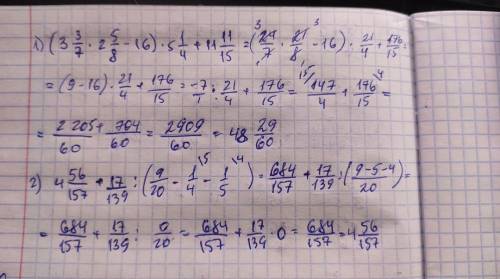 1) (3 3/7 · 2 5/8 - 16) · 5 1/4 + 11 11/15 = (24/7 · 21/8 - 16) · 21/4 + 176/15 =
= (9 - 16) · 21/4 + 176/15 = -7/1 · 21/4 + 176/15 = 147/4 + 176/15 =
= 2205 + 704/60 = 2909/60 = 48 29/60
2) 4 56/157 + 17/139 : (9/20 - 1/4 - 1/5) = 684/157 + 17/139 · (9-5-4/20) =
= 684/157 + 17/139 : 0/20 = 684/157 + 17/139 · 0 = 684/157 = 4 56/157